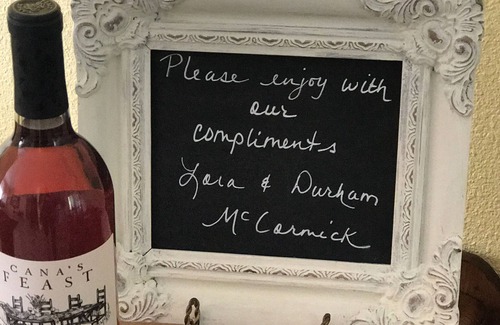 Please enjoy with
our
compliments
Lora & Durham
McCormick
CANA'S
FEAST